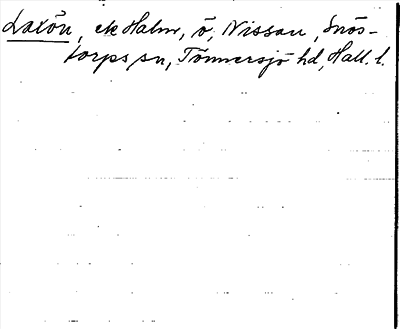 Laxön, ek Halm, ö, Nissan, Snös-
torps sn, Tönnersjö hd, Hall. l.